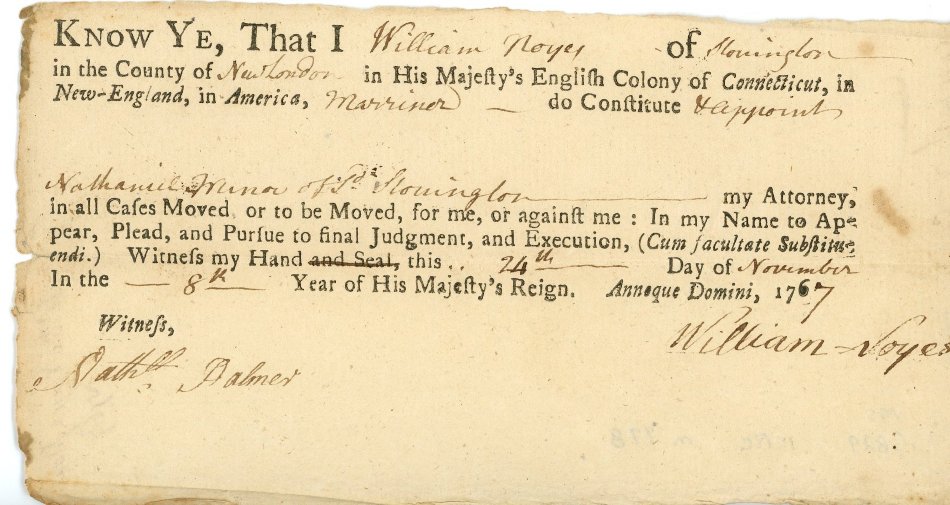 KNOW YE, That I William Noyes of Stonington
in the County of New London in His Majeſty's Engliſh Colony of Connecticut, in
New-England, in America, Marriner do Conſtitute & appoint
Nathaniel Minor of Sd. Stonington my Attorney,
in all Caſes Moved or to be Moved, for me, or againſt me : In my Name to Ap-
pear, Plead, and Purſue to final Judgment, and Execution, (Cum facultate Subſtitu-
endi.) Witneſs my Hand and Seal, this .. 24th Day of November
In the 8th Year of His Majeſty's Reign. Annoque Domini, 1767
Witneſs,
William Noyes
Nathll. Palmer